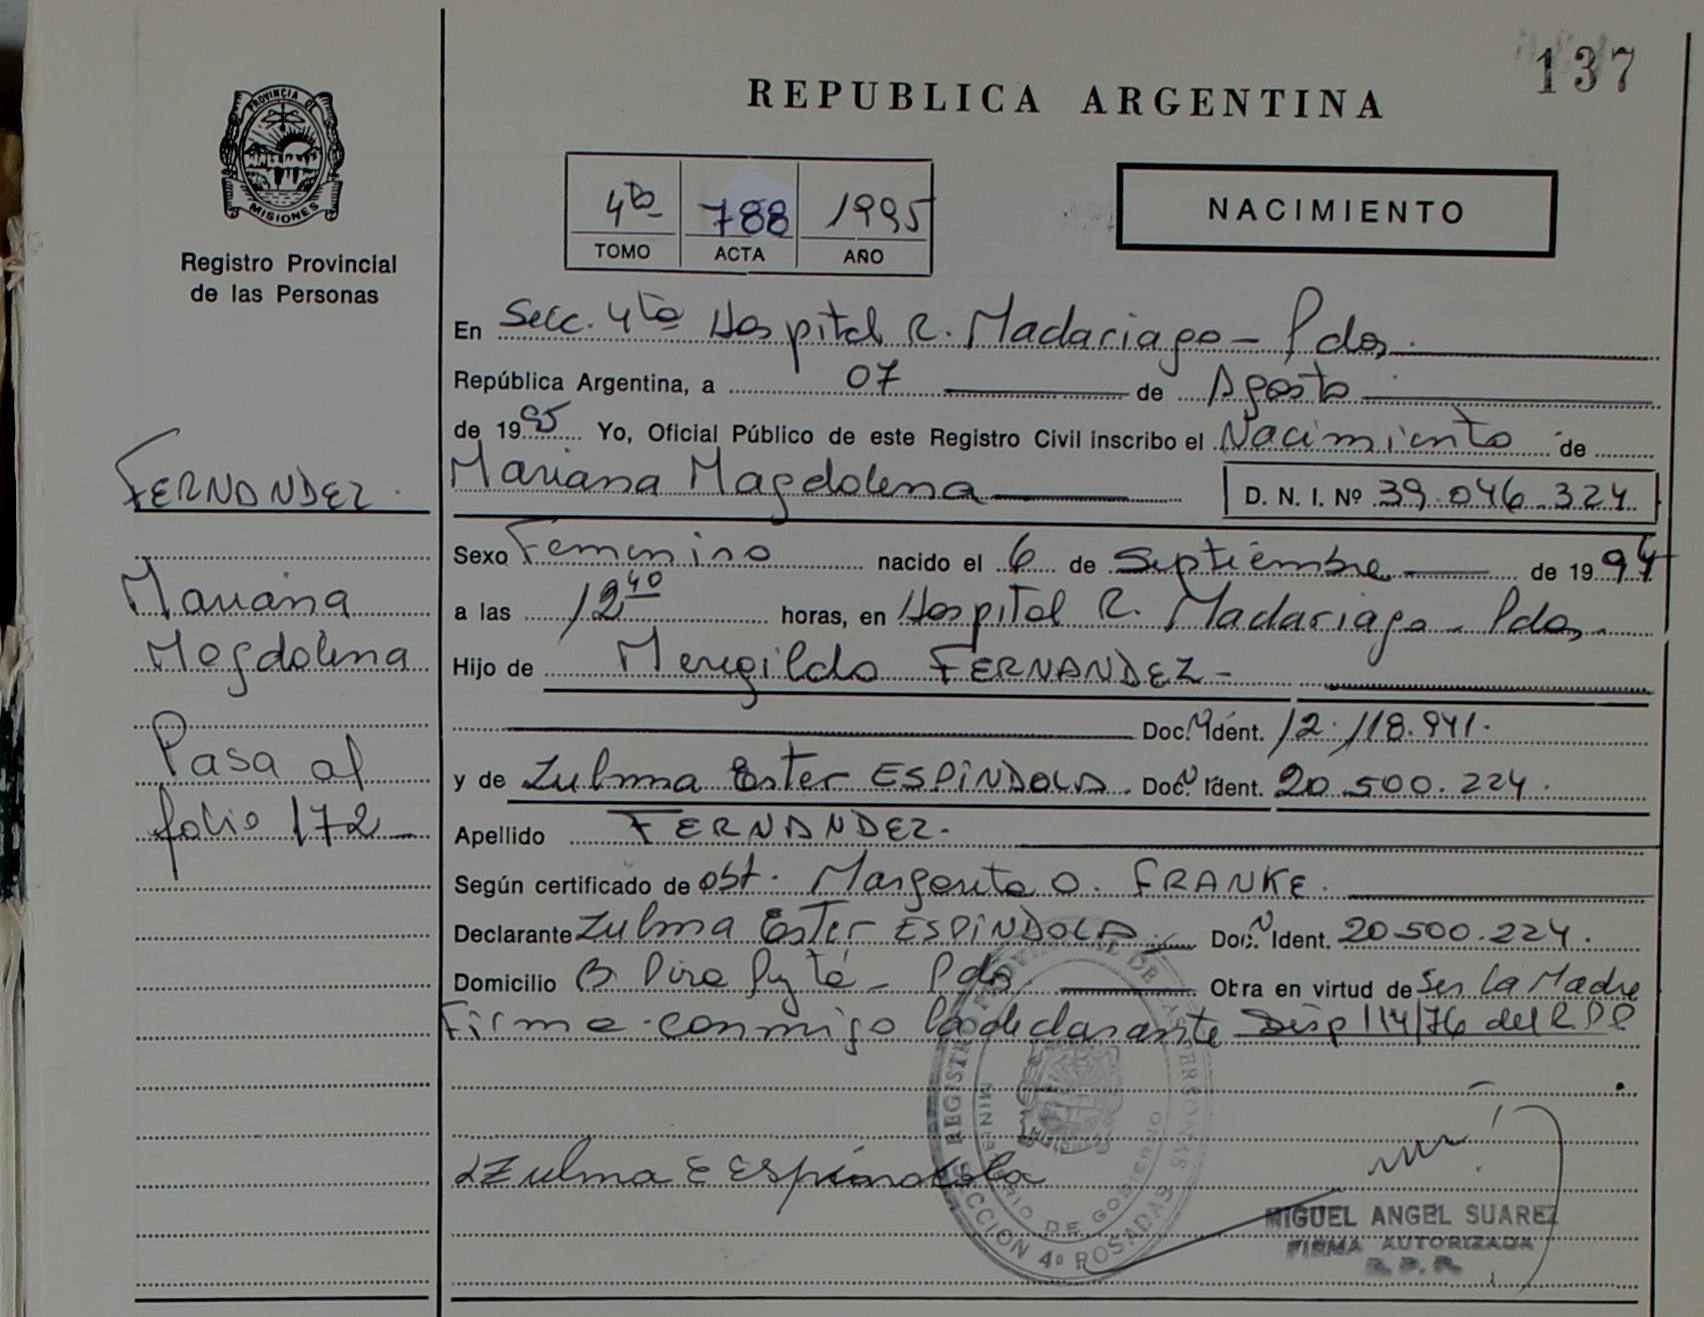 137
REPUBLICA ARGENTINA
PROVINCIA DE
MISIONES
Registro Provincial
de las Personas
4to 788 1995
TOMO ACTA AÑO
NACIMIENTO
En Secc. 4ta Hospital R. Madariaga - Pdas.
República Argentina, a 07 de Agosto
de 1995 Yo, Oficial Público de este Registro Civil inscribo el Nacimiento de
Mariana Magdalena D. N. I. Nº 39.046.324
Sexo Femenino nacido el 6 de Septiembre de 1994
a las 12 40 horas, en Hospital R. Madariaga - Pdas.
Hijo de Meregildo FERNANDEZ -
Doc. Ident. 12.118.941.
y de Zulma Ester ESPINDOLA. Doc. Ident. 20.500.224.
Apellido FERNANDEZ.
Según certificado de obst. Margarita O. FRANKE.
Declarante Zulma Ester ESPINDOLA Doc. Ident. 20.500.224.
Domicilio B Pira Pyté - Pdas Obra en virtud de Ser la Madre
Firma conmigo la declarante Disp 114/76 del R.P.P
FERNANDEZ.
Mariana
Magdalena
Pasa al
folio 172
Zulma E Espindola
REGISTRO PROVINCIAL DE LAS PERSONAS
MINISTERIO DE GOBIERNO
SECCION 4º POSADAS
MIGUEL ANGEL SUAREZ
FIRMA AUTORIZADA
R. P. P.